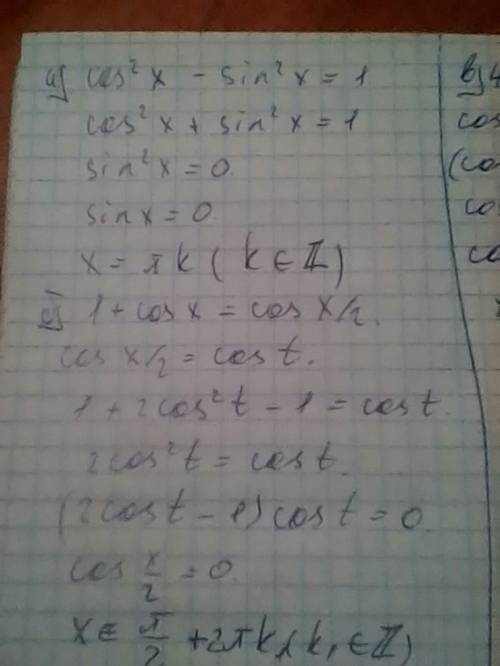 a) cos²x - sin²x = 1
cos²x + sin²x = 1
sin²x = 0
sin x = 0
x = πk (k ∈ ℤ)
б) 1 + cos x = cos x/2.
cos x/2 = cos t.
1 + 2cos²t - 1 = cos t
2cos²t = cos t.
(2cos t - 1) cos t = 0
cos x/2 = 0
x ∈ π/2 + 2πk, (k, ∈ ℤ)
в)
cos
(co
co
co